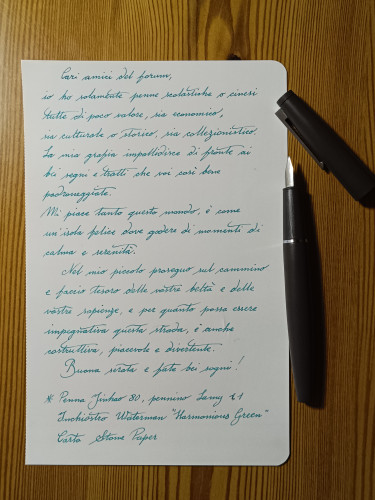 Cari amici del forum,
io ho solamente penne scolastiche o cinesi
tutte di poco valore, sia economico,
sia culturale o storico, sia collezionistico.
La mia grafia impallidisce di fronte ai
bei segni e tratti che voi così bene
padroneggiate.
Mi piace tanto questo mondo, è come
un'isola felice dove godere di momenti di
calma e serenità.
Nel mio piccolo proseguo sul cammino
e faccio tesoro delle vostre beltà e delle
vostre sapienze, e per quanto possa essere
impegnativa questa strada, è anche
costruttiva, piacevole e divertente.
Buona serata e fate bei sogni!
* Penna Jinhao 80, pennino Lamy 1.1
Inchiostro Waterman "Harmonious Green"
Carta Stone Paper